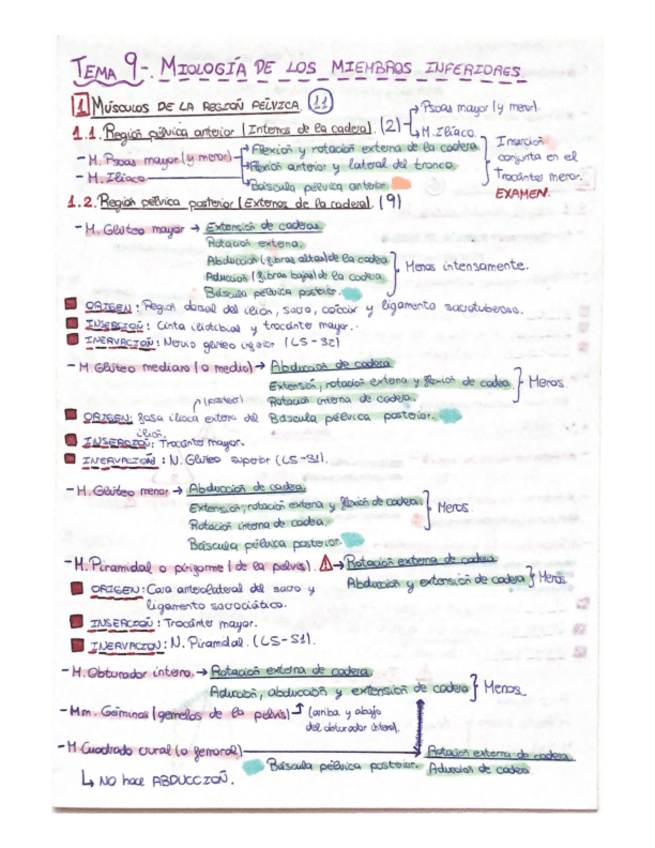 TEMA 9-. MIOLOGÍA DE LOS MIEMBROS INFERIORES
1 MÚSCULOS DE LA REGIÓN PÉLVICA. (11)
Psoas mayor (y menor).
1.1. Región pélvica anterior (Internos de la cadera). (2)
M. Ilíaco.
- M. Psoas mayor (y menor)
Flexión y rotación externa de la cadera
Flexión anterior y lateral del tronco.
- M. Ilíaco
Báscula pélvica anterior
Inserción
conjunta en el
Trocánter menor.
EXAMEN.
1.2. Región pélvica posterior (Externos de la cadera). (9)
- M. Glúteo mayor → Extensión de caderas
Rotación externa.
Abducción (fibras altas) de la cadera
Aducción (fibras bajas) de la cadera.
Menos intensamente.
Báscula pélvica posterior.
ORIGEN: Región dorsal del ilion, sacro, coxis y ligamento sacrotuberoso.
INSERCIÓN: Cinta iliotibial y trocánter mayor.
INERVACIÓN: Nervio glúteo inferior (L5-S2)
- M Glúteo mediano (o medio) → Abducción de cadera
Extensión, rotación externa y flexión de cadera
Rotación interna de cadera.
Menos.
(posterior)
ORIGEN: fosa ilíaca externa del ilion.
Báscula pélvica posterior.
INSERCIÓN: Trocánter mayor.
INERVACIÓN: N. Glúteo superior (L5-S1).
- M. Glúteo menor → Abducción de cadera
Extensión, rotación externa y flexión de cadera
Rotación interna de cadera.
Menos.
Báscula pélvica posterior
- M. Piramidal o piriforme (de la pelvis). → Rotación externa de cadera
Abducción y extensión de cadera
Menos.
ORIGEN: Cara anterolateral del sacro y
ligamento sacrociático.
INSERCIÓN: Trocánter mayor.
INERVACIÓN: N. Piramidal. (L5-S1).
- M. Obturador interno. → Rotación externa de cadera
Aducción, abducción y extensión de cadera
Menos
- Mm. Géminos (gemelos de la pelvis) → (arriba y abajo
del obturador interno).
- M Cuadrado crural (o femoral)
Rotación externa de cadera
Báscula pélvica posterior.
Aducción de cadera
↳ NO hace ABDUCCIÓN.